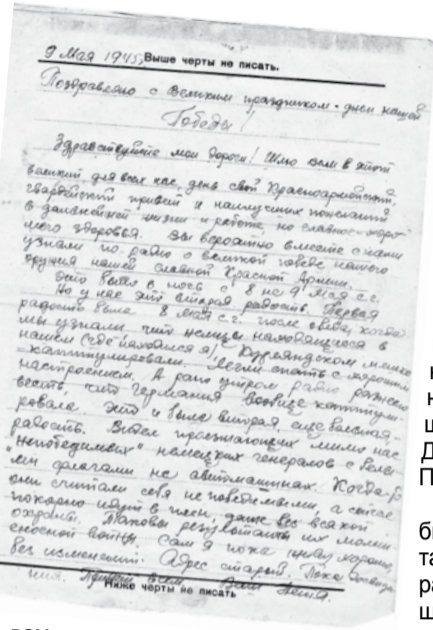 9 Мая 1945, Выше черты не писать.
Поздравляю с Великим праздником - днем нашей
Победы!
Здравствуйте мои дорогие! Шлю Вам в этот
великий для всех нас, день свой Красноармейский,
гвардейский привет и наилучших пожеланий
в дальнейшей жизни и работе, но главное - хоро-
шего здоровья. Вы вероятно вместе с нами
узнали по радио о великой победе нашего
оружия нашей славной Красной Армии.
Это было в ночь с 8 на 9 мая с.г.
Но у нас это вторая радость. Первая
радость была 8 мая с.г. после обеда, когда
мы узнали, что немцы находящиеся в
нашем (где находимся я) Курляндском мешке
капитулировали. Легли спать с хорошим
настроением. А рано утром радио разнесло
весть, что Германия вообще капитули-
ровала. Это и была вторая, еще большая
радость. Видел проезжающих мимо нас
"непобедимых" немецких генералов с белы-
ми флагами на автомашинах. Когда-то
они считали себя непобедимыми, а сейчас
покорно идут в плен, даже без всякой
охраны. Таковы результаты их молни-
еносной войны. Сам я пока живу хорошо,
без изменений. Адрес старый. Пока
Привет всем. Ваш
Ниже черты не писать